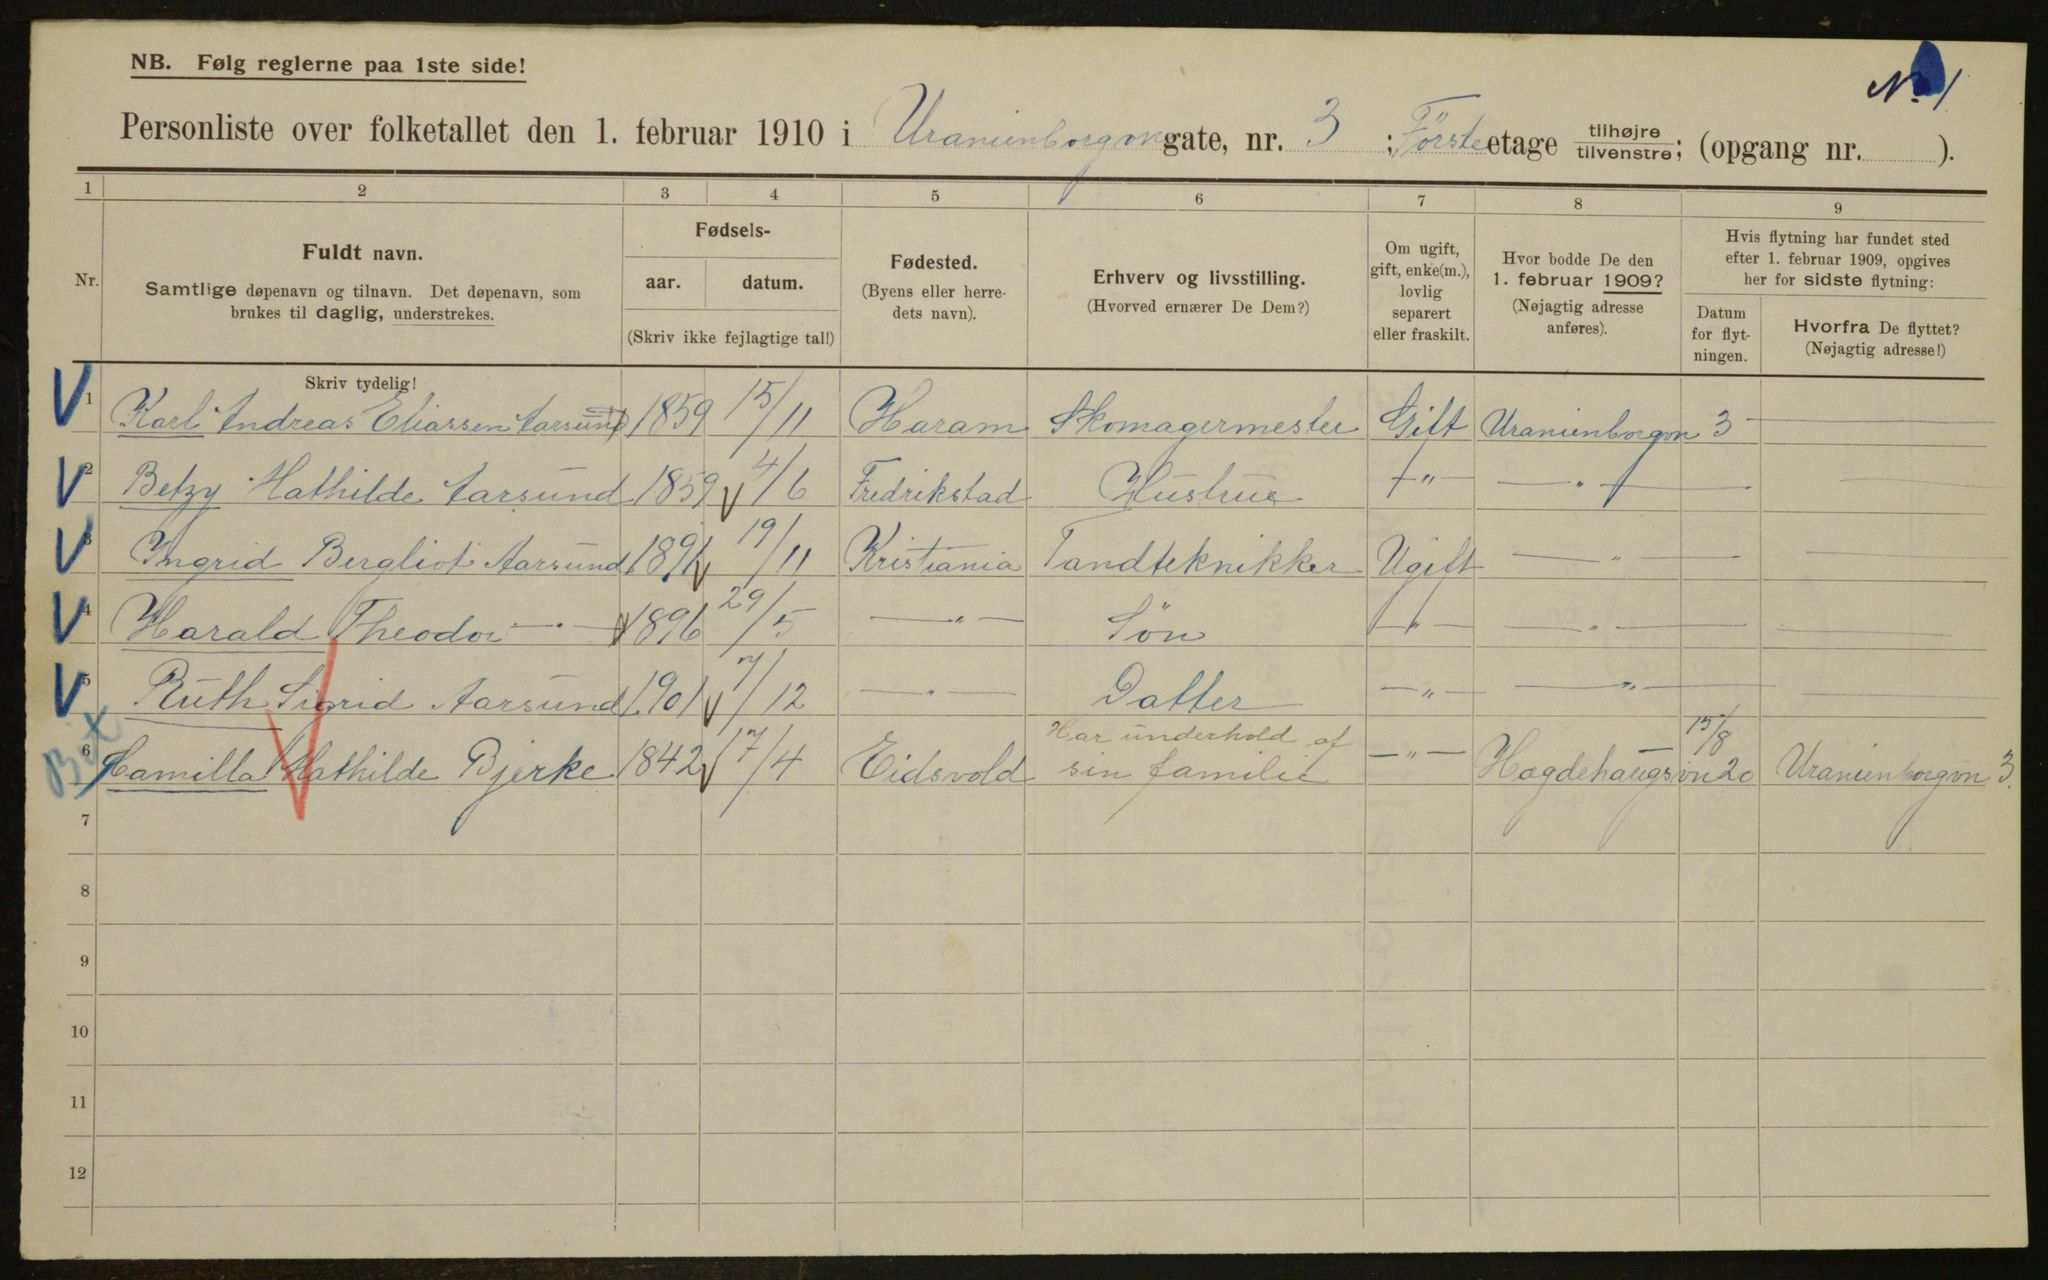 NB. Følg reglerne paa 1ste side!
No. 1
Personliste over folketallet den 1. februar 1910 i Uranienborgvn gate, nr. 3 ; Første etage tilhøjre / tilvenstre; (opgang nr. ).
1 2 3 4 5 6 7 8 9
Nr.
Fuldt navn.
Samtlige døpenavn og tilnavn. Det døpenavn, som
brukes til daglig, understrekes.
Fødsels-
aar. datum.
(Skriv ikke fejlagtige tal!)
Fødested.
(Byens eller herre-
dets navn).
Erhverv og livsstilling.
(Hvorved ernærer De Dem?)
Om ugift,
gift, enke(m.),
lovlig
separert
eller fraskilt.
Hvor bodde De den
1. februar 1909?
(Nøjagtig adresse
anføres).
Hvis flytning har fundet sted
efter 1. februar 1909, opgives
her for sidste flytning:
Datum
for flyt-
ningen.
Hvorfra De flyttet?
(Nøjagtig adresse!)
Skriv tydelig!
1 Karl Andreas Eliassen Aarsund 1859 15/11 Haram Skomagermester Gift Uranienborgvn 3 —
2 Betzy Mathilde Aarsund 1859 4/6 Fredrikstad Hustrue —"— —"—
3 Ingrid Bergliot Aarsund 1891 19/11 Kristiania Tandteknikker Ugift —"—
4 Harald Theodor —"— 1896 29/5 —"— Søn —"— —"—
5 Ruth Sigrid Aarsund 1901 7/12 —"— Datter —"— —"—
6 Camilla Mathilde Bjerke 1842 17/4 Eidsvold Har underhold af sin familie —"— Hægdehaugsvn 20 15/8 Uranienborgvn 3.
7
8
9
10
11
12